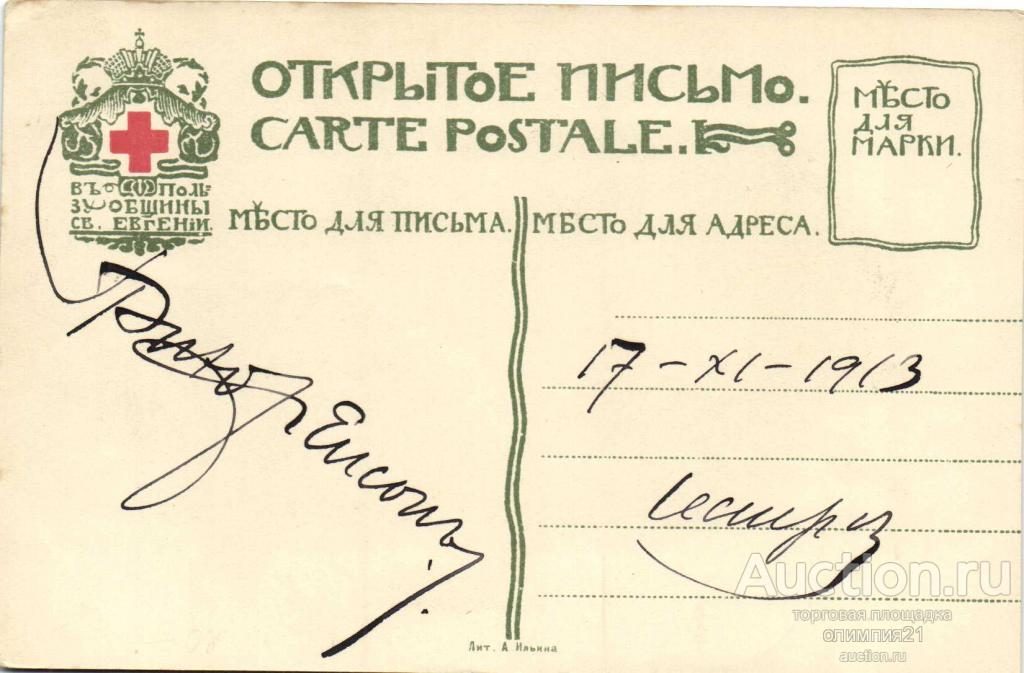 ОТКРЫТОЕ ПИСЬМО.
CARTE POSTALE.
МѢСТО
ДЛЯ
МАРКИ.
ВЪ ПОЛЬ-
ЗУ ОБЩИНЫ
СВ. ЕВГЕНІИ.
МѢСТО ДЛЯ ПИСЬМА.
МѢСТО ДЛЯ АДРЕСА.
17-XI-1913
Лит. А. Ильина
Auction.ru
торговая площадка
олимпия21
auction.ru